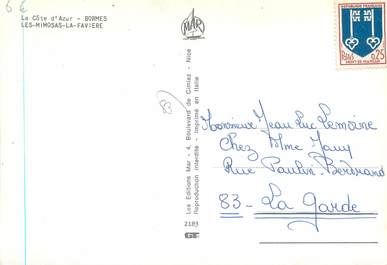 6 €
La Côte d'Azur - BORMES
LES-MIMOSAS-LA-FAVIERE
MAR
Les Editions Mar - 4, Boulevard de Cimiez - Nice
Reproduction interdite - Imprimé en Italie
2183
83
REPUBLIQUE FRANCAISE
0,25
MONT-DE-MARSAN
Monsieur Jean Luc Lemoine
Chez Mme Jauy
Rue Paulin-Bertrand
83 - La Garde